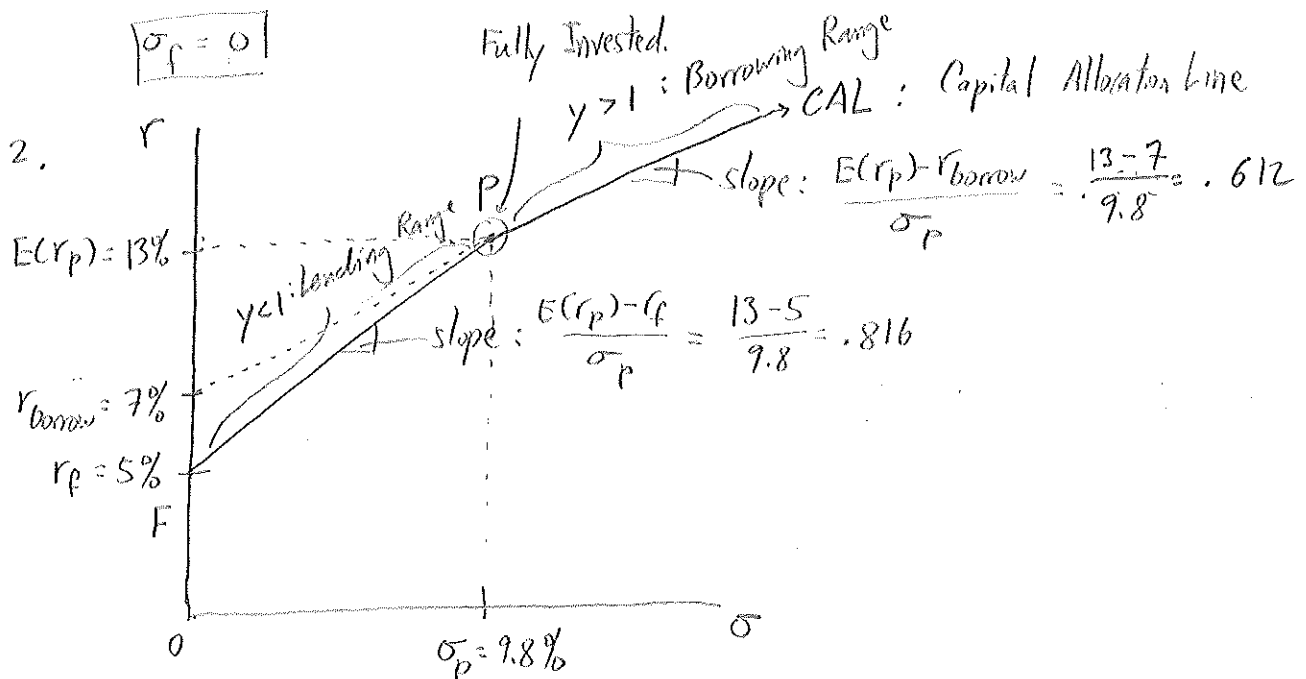 σ_f = 0
Fully Invested.
y > 1 : Borrowing Range
CAL : Capital Allocation Line
2.
r
slope: E(r_p) - r_borrow / σ_p = 13 - 7 / 9.8 = .612
P
E(r_p) = 13%
y<1 : Lending Range
slope : E(r_p) - r_f / σ_p = 13 - 5 / 9.8 = .816
r_borrow = 7%
r_f = 5%
F
0
σ_p = 9.8%
σ